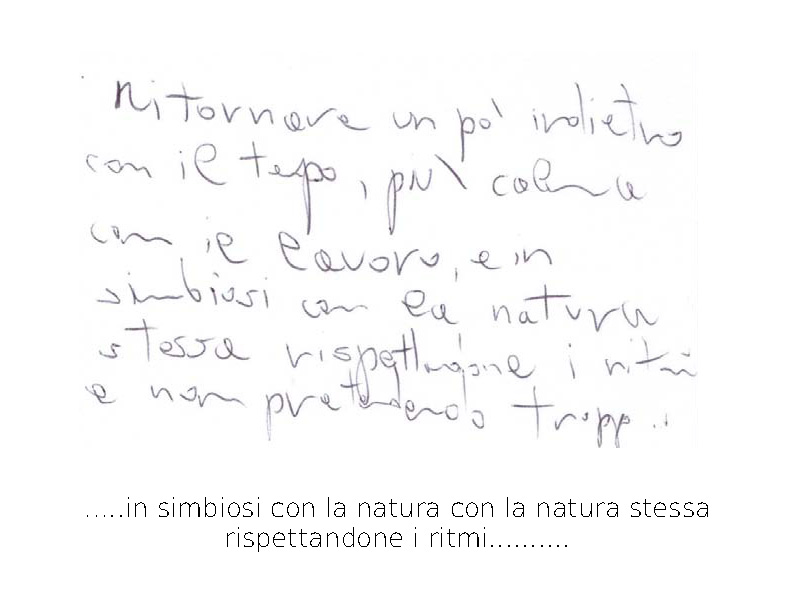 Ritornare un po' indietro
con il tempo, più calma
con il lavoro, e in
simbiosi con la natura
stessa rispettandone i ritmi
e non pretendendo tropp..
.....in simbiosi con la natura con la natura stessa
rispettandone i ritmi..........